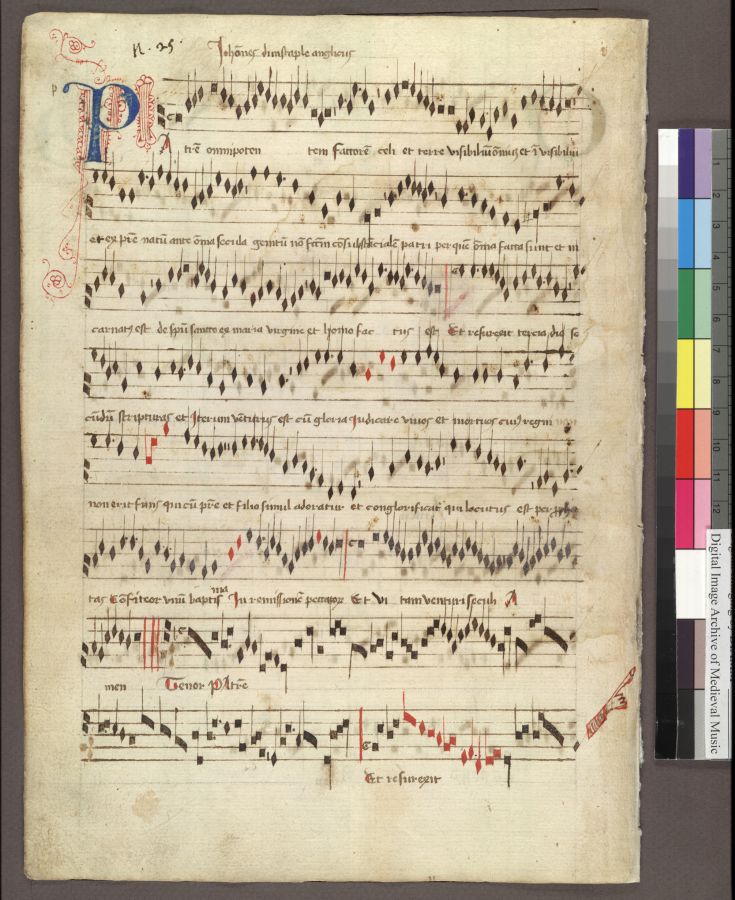 N. 25.
Johānes dunstaple anglicus
P
A trē omnipoten tem factorē celi et terre visibiliū omniū et ī visibiliū
et ex prē natū ante oīa secula genitū nō factū cōsubstācialē patri per quē oīa facta sunt et in
carnatꝰ est de spū sancto ex maria virgine et homo fac tus est Et resurexit tercia die se
cūdū scripturas et Iterum vēturus est cū gloria Iudicare vivos et mortuos cuiꝰ regni
non erit finis qui cū prē et filio simul adoratur et conglorificat qui locutus est per prophe
tas Cōfiteor unū baptis ma In remissionē peccatorꝝ Et vi tam venturi seculi A
men Tenor Patrē
Et resurexit
1
2
3
4
5
6
7
8
9
10
11
12
Digital Image Archive of Medieval Music